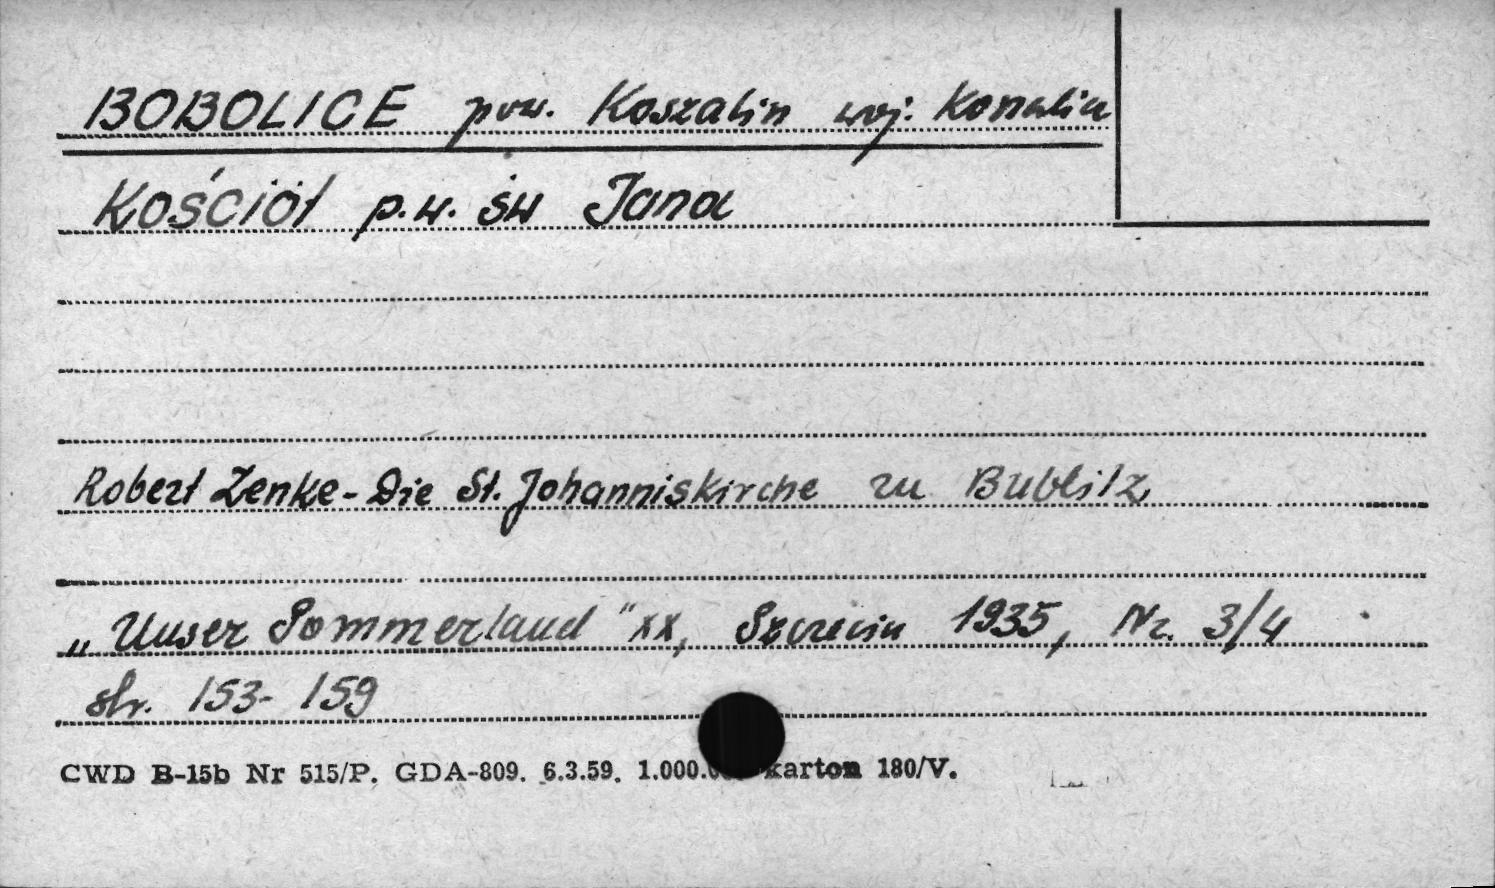 BOBOLICE pow. Koszalin woj. Koszalin
Kościół p.w. św Jana
Robert Zenke - Die St. Johanniskirche zu Bublitz,
„Unser Pommerland" XX, Szczecin 1935, Nr. 3/4
str. 153-159
CWD B-15b Nr 515/P. GDA-809. 6.3.59. 1.000. karton 180/V.